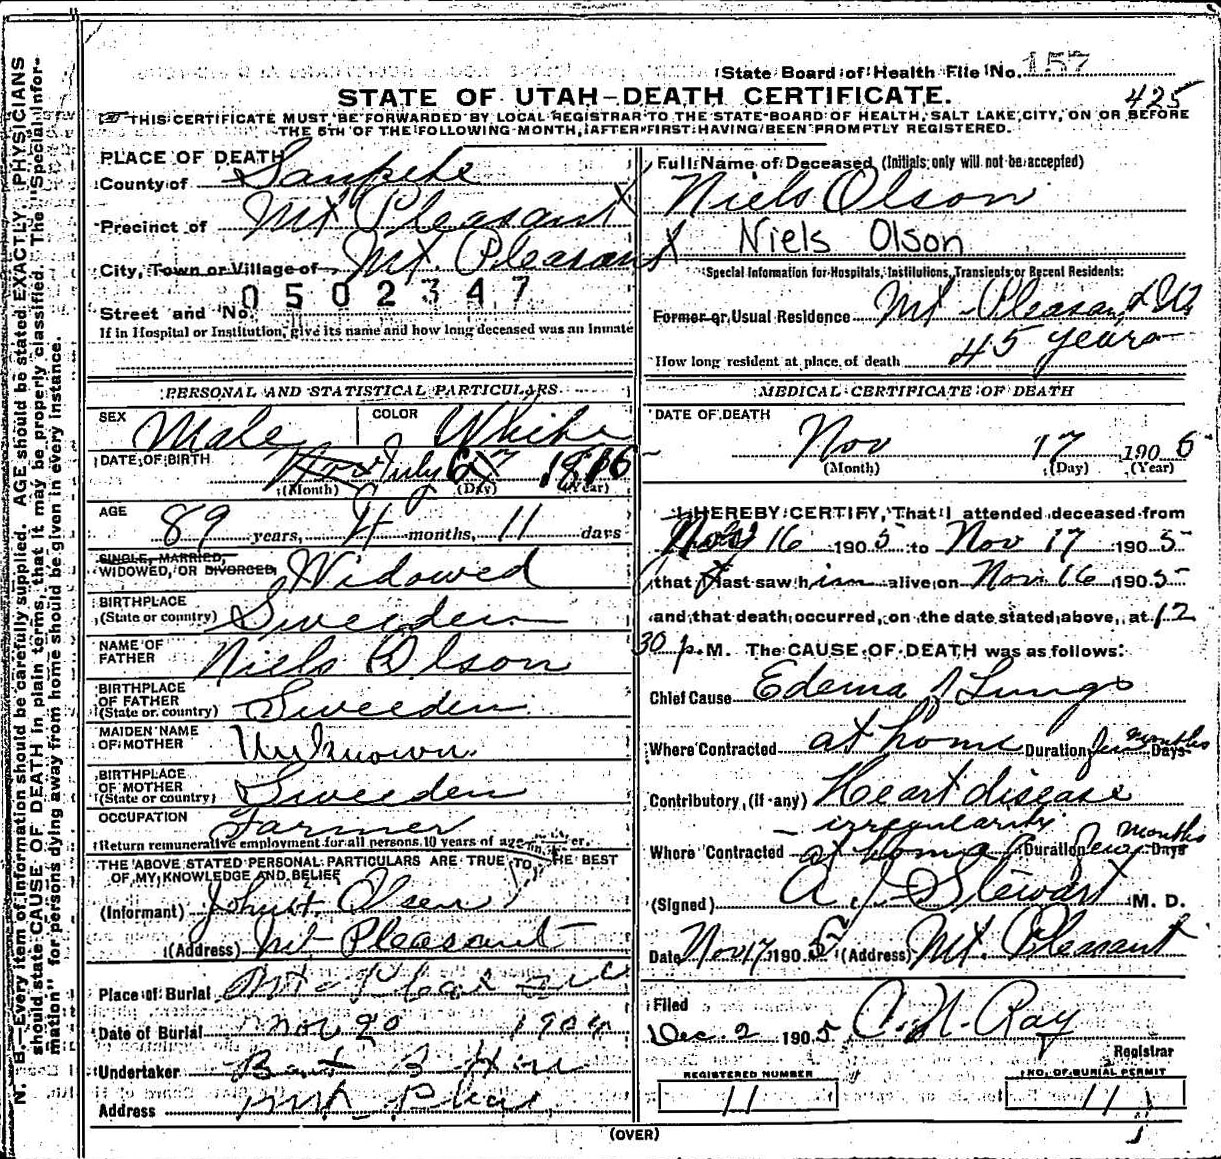 State Board of Health File No. 157
STATE OF UTAH—DEATH CERTIFICATE. 425
THIS CERTIFICATE MUST BE FORWARDED BY LOCAL REGISTRAR TO THE STATE BOARD OF HEALTH, SALT LAKE CITY, ON OR BEFORE
THE 5TH OF THE FOLLOWING MONTH, AFTER FIRST HAVING BEEN PROMPTLY REGISTERED.
N. B.—Every item of information should be carefully supplied. AGE should be stated EXACTLY. PHYSICIANS
should state CAUSE OF DEATH in plain terms, that it may be properly classified. The "Special Infor-
mation" for persons dying away from home should be given in every instance.
PLACE OF DEATH
County of Sanpete
Precinct of Mt Pleasant X
City, Town or Village of Mt. Pleasant X
0502347
Street and No.
If in Hospital or Institution, give its name and how long deceased was an Inmate
PERSONAL AND STATISTICAL PARTICULARS
SEX Male COLOR White
DATE OF BIRTH Nov July 6 1816
(Month) (Day) (Year)
AGE 89 years, 4 months, 11 days
SINGLE, MARRIED,
WIDOWED, OR DIVORCED Widowed
BIRTHPLACE
(State or country) Sweeden
NAME OF
FATHER Niels Olson
BIRTHPLACE
OF FATHER
(State or country) Sweeden
MAIDEN NAME
OF MOTHER Unknown
BIRTHPLACE
OF MOTHER
(State or country) Sweeden
OCCUPATION Farmer
Return remunerative employment for all persons 10 years of age and over.
THE ABOVE STATED PERSONAL PARTICULARS ARE TRUE TO THE BEST
OF MY KNOWLEDGE AND BELIEF
(Informant) John H. Olsen
(Address) Mt Pleasant
Place of Burial Mt Pleas
Date of Burial Nov 20 190
Undertaker
Address Mt Pleas
Full Name of Deceased (Initials only will not be accepted)
Niels Olson
Niels Olson
Special Information for Hospitals, Institutions, Transients or Recent Residents:
Former or Usual Residence Mt Pleasant
How long resident at place of death 45 years
MEDICAL CERTIFICATE OF DEATH
DATE OF DEATH
Nov 17 1905
(Month) (Day) (Year)
I HEREBY CERTIFY, That I attended deceased from
Nov 16 1905 to Nov 17 1905
that I last saw him alive on Nov 16 1905
and that death occurred, on the date stated above, at 12
30 p. M. The CAUSE OF DEATH was as follows:
Chief Cause Edema of Lungs
Where Contracted at home Duration few months Days
Contributory (if any) Heart disease
irregularity
Where Contracted at home Duration few months Days
(Signed) A. J. Stewart M. D.
Date Nov 17 1905 (Address) Mt. Pleasant
Filed
Dec. 2 1905 C. N. Ray
Registrar
REGISTERED NUMBER
11
NO. OF BURIAL PERMIT
11
(OVER)